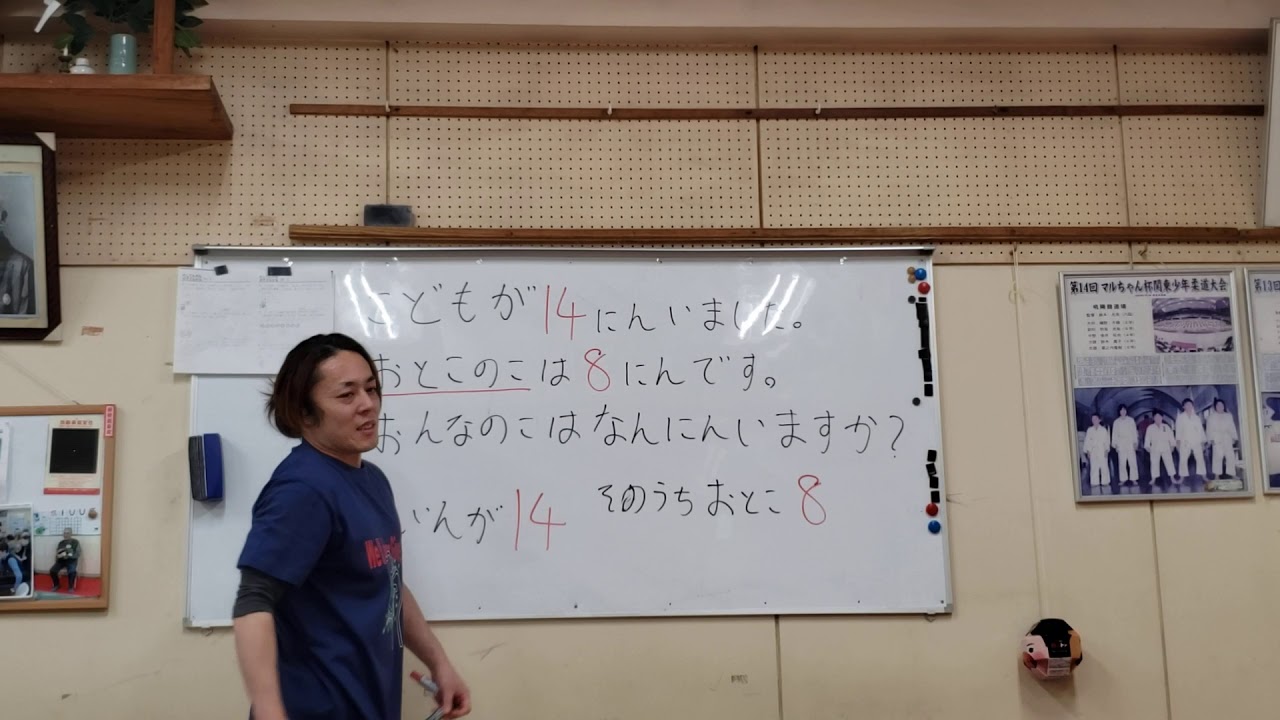 こどもが14にんいました。
おとこのこは8にんです。
おんなのこはなんにんいますか?
いんが14 そのうちおとこ8
第14回 マルちゃん杯関東少年柔道大会
第13回